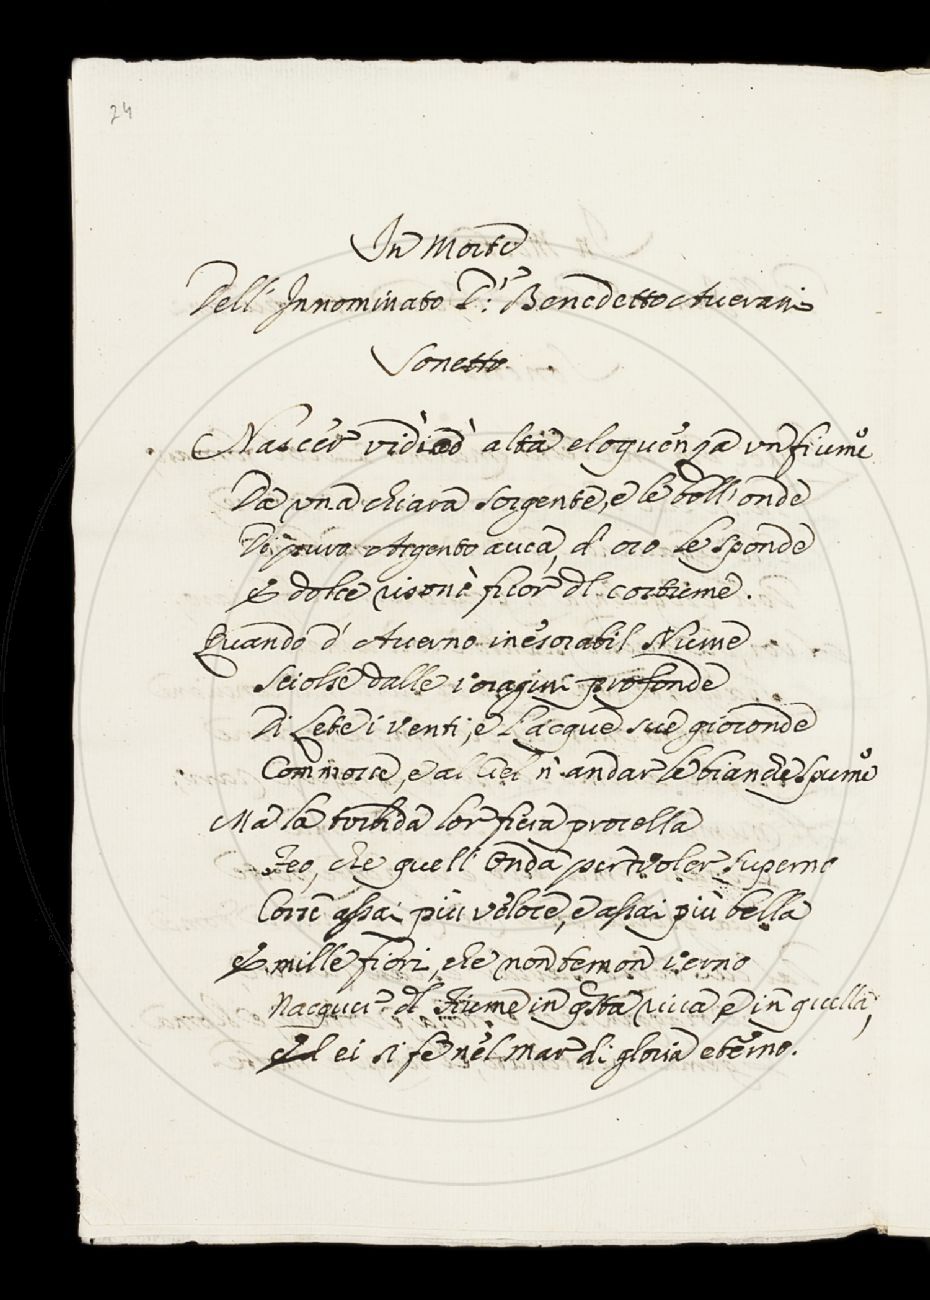 24
In Morte
Dell' Innominato D.r Benedetto Averani
Sonetto.
Nascer vidi ad alta eloquenza un fiume
Da una chiara Sorgente, e le bell' onde
Di pura Argento avea, d' oro le sponde
E dolce vi son è fior del
Quando d' Averno inesorabil Nume
Sciolse dalle voragini profonde
Di Lete i venti, e l'acque sue gioconde
Commosse, e al Ciel n' andar le bianche Spume
Ma la torbida lor fiera procella
Feo, che quell' Onda per voler superno
Corre assai più veloce, e assai più bella
E mille fiori, che non temon verno
Nacquer del Fiume in qsta riva e in quella;
Ed ei si fè nel mar di gloria eterno.